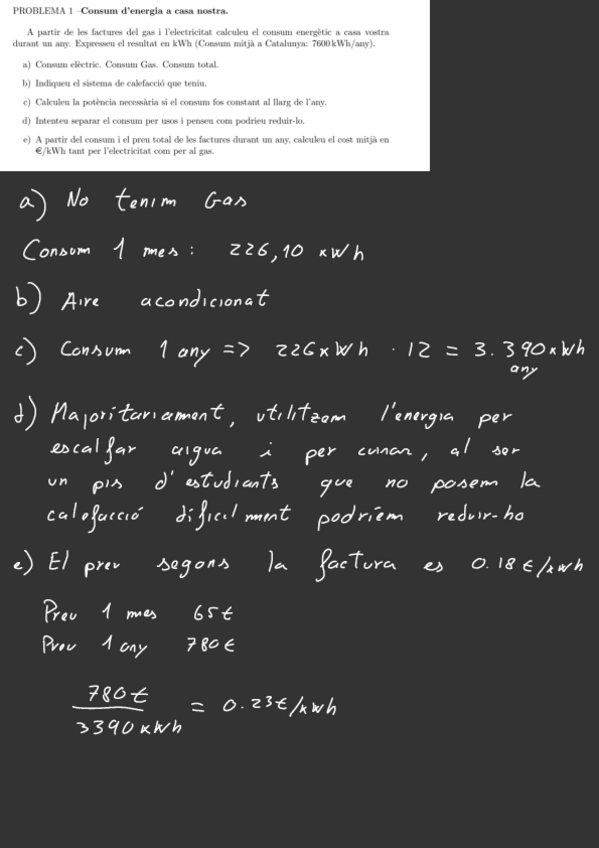 PROBLEMA 1 –Consum d'energia a casa nostra.
A partir de les factures del gas i l'electricitat calculeu el consum energètic a casa vostra
durant un any. Expresseu el resultat en kWh (Consum mitjà a Catalunya: 7600 kWh/any).
a) Consum elèctric. Consum Gas. Consum total.
b) Indiqueu el sistema de calefacció que teniu.
c) Calculeu la potència necessària si el consum fos constant al llarg de l'any.
d) Intenteu separar el consum per usos i penseu com podrieu reduir-lo.
e) A partir del consum i el preu total de les factures durant un any, calculeu el cost mitjà en
€/kWh tant per l'electricitat com per al gas.
a) No tenim Gas
Consum 1 mes: 226,10 kWh
b) Aire acondicionat
c) Consum 1 any => 226kWh · 12 = 3.390kWh
any
d) Majoritariament, utilitzem l'energia per
escalfar aigua i per cuinar, al ser
un pis d'estudiants que no posem la
calefacció dificilment podriem reduir-ho
e) El preu segons la factura es 0.18€/kWh
Preu 1 mes 65€
Preu 1 any 780€
780€
= 0.23€/kWh
3390kWh